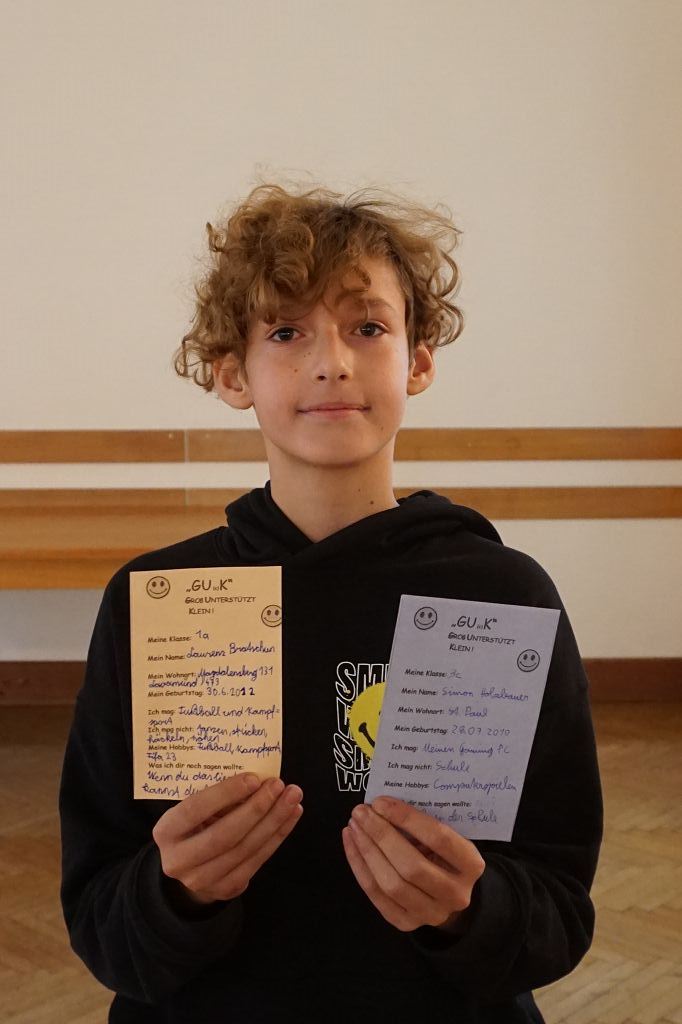 „GU (u) K“
GROß UNTERSTÜTZT
KLEIN!
Meine Klasse: 1a
Mein Name: Laurenz
Mein Wohnort: Magdalensberg 131
Lavamünd 9473
Mein Geburtstag: 30.6.2012
Ich mag: Fußball und Kampf=
sport
Ich mag nicht: tanzen, sticken,
häckeln, nähen
Meine Hobbys: Fußball, Kampfsport
Fifa 23
Was ich dir noch sagen wollte:
Wenn du das liest
kannst du
„GU (u) K“
GROß UNTERSTÜTZT
KLEIN!
Meine Klasse: 3c
Mein Name: Simon Holzbauer
Mein Wohnort: St. Paul
Mein Geburtstag: 28.07.2010
Ich mag: Meinen Gaming PC
Ich mag nicht: Schule
Meine Hobbys: Computerspielen
dir noch sagen wollte:
in der Schule